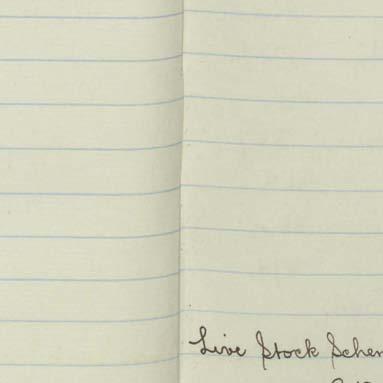 Live Stock Schem